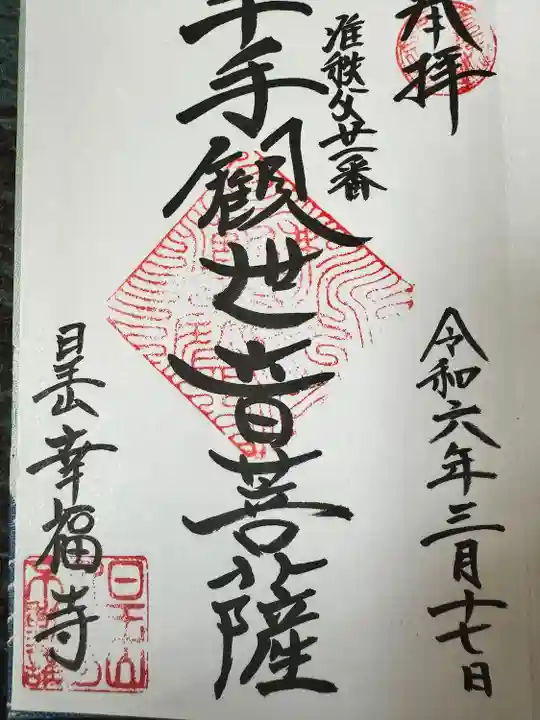 奉拝
令和六年三月十七日
准秩父廿一番
千手観世音菩薩
日天山 幸福寺
日天山